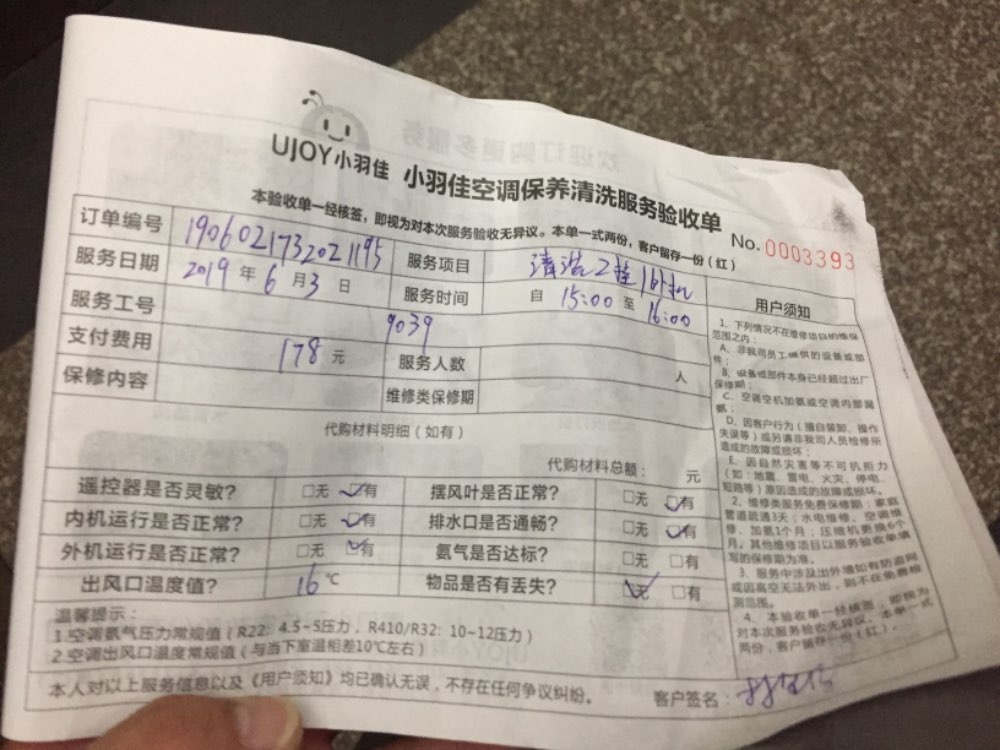 UJOY小羽佳 小羽佳空调保养清洗服务验收单
本验收单一经核签，即视为对本次服务验收无异议。本单一式两份，客户留存一份（红）
No. 0003393
订单编号 1906021732021195 服务项目 清洗2挂1外机
服务日期 2019 年 6 月 3 日 服务时间 自 15:00 至 16:00
服务工号 9039
支付费用 178 元 服务人数 人
保修内容 维修类保修期
代购材料明细（如有）
代购材料总额： 元
遥控器是否灵敏？ □无 ☑有 摆风叶是否正常？ □无 ☑有
内机运行是否正常？ □无 ☑有 排水口是否通畅？ □无 ☑有
外机运行是否正常？ □无 ☑有 氨气是否达标？ □无 □有
出风口温度值？ 16 ℃ 物品是否有丢失？ ☑无 □有
温馨提示：
1.空调氨气压力常规值（R22：4.5~5压力，R410/R32：10~12压力）
2.空调出风口温度常规值（与当下室温相差10℃左右）
本人对以上服务信息以及《用户须知》均已确认无误，不存在任何争议纠纷。
客户签名：
用户须知
1、下列情况不在维修项目的维保
范围之内：
A、非我司员工提供的设备或部
件；
B、设备或部件本身已经超过出厂
保修期；
C、空调空机加氨或空调内部漏
氨；
D、因客户行为（擅自装卸、操作
失误等）或另请非我司人员检修所
造成的故障或损坏；
E、因自然灾害等不可抗拒力
（如：地震、雷电、火灾、停电、
短路等）原因造成的故障或损坏。
2、维修类服务免费保修期：家庭
管道疏通3天；水电维修、空调维
修、加氨1个月；压缩机更换6个
月。其他维修项目以服务验收单填
写的保修期为准。
3、服务中涉及出外墙如有防盗网
或因高空无法外出，则不在免费检
测范围。
4、本验收单一经核签，即视为
对本次服务验收无异议。本单一式
两份，客户留存一份（红）。